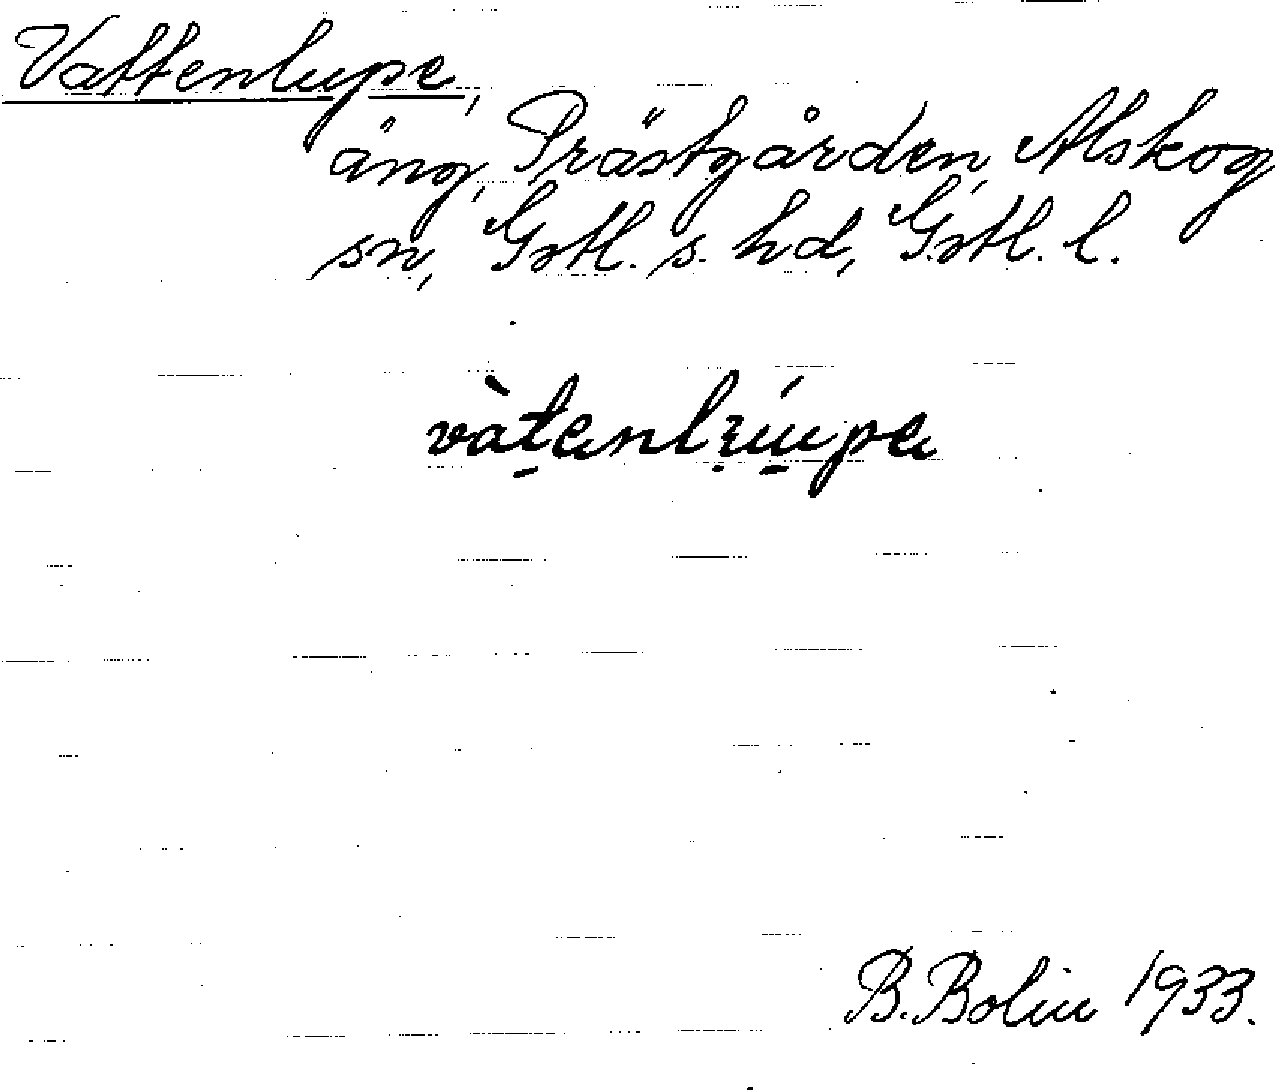 Vattenlupe,
äng, Prästgården, Alskog
sn, Gotl. s. hd, Gotl. l.
B. Bolin 1933.